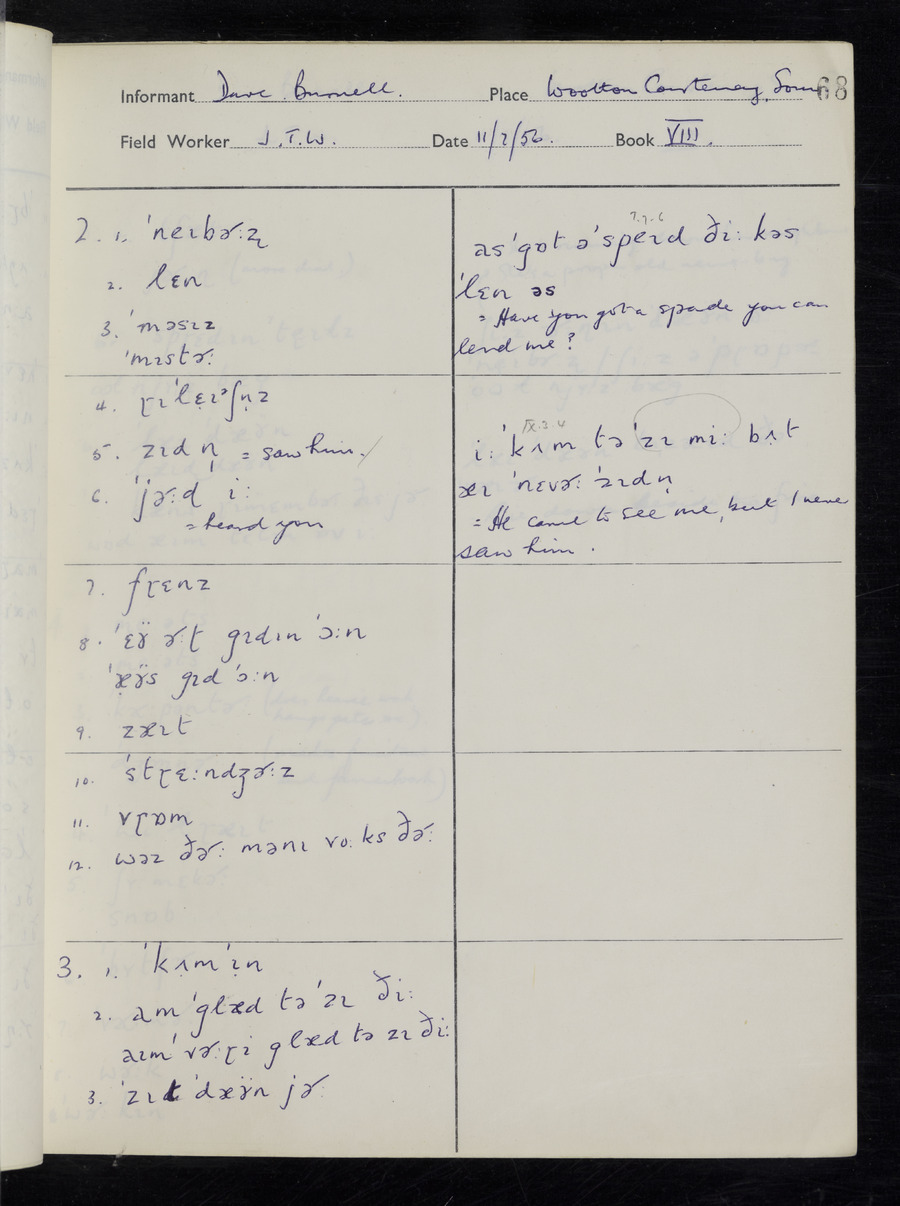 Informant Dave Burnell. Place Wootton Courtenay, Som 68
Field Worker J.T.W. Date 11/2/56. Book VIII.
2. 1. ˈneɪbɚːz̩
2. lɛn
3. ˈməsɪz
ˈmɪstɚː
4. ɽɪˈlɛɪᵊʃn̩z
5. zɪdn̩ = saw him.
6. ˈjɚːd iː
= heard you
7. fɽɛnz
8. ˈɛʏ̈ ɚːt gɪdɪn ˈɔːn
ˈæ̣ʏ̈s gɪd ˈɔːn
9. zæɪt
10. ˈstɽɛːndʒɚːz
11. vɽɒm
12. wəz ðɚː mənɪ voːks ðɚː
3. 1. ˈkʌmˈɪn
2. am ˈglæd tə ˈzɪ ðiː
aɪmˈ vɚːɽi glæd tə zɪ ðiː
3. ˈzɪt ˈdæʏ̈n jɚː
7.7.6
əsˈgɒt əˈspeɪd ðiː kəs
ˈlɛn əs
= Have you got a spade you can
lend me?
IX.3.4
iː ˈkʌm tə ˈzɪ miː bʌt
æɪ ˈnɛvɚː ˈzɪdn̩
= He came to see me, but I never
saw him.